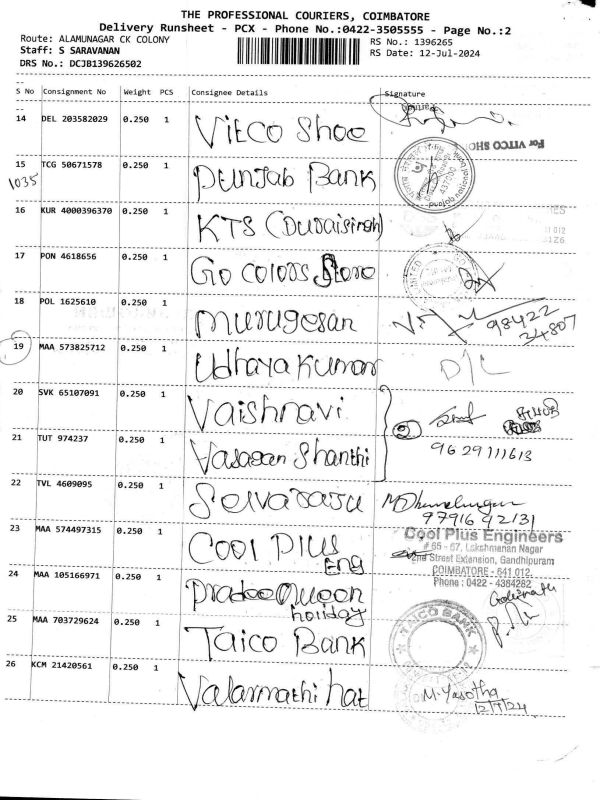 THE PROFESSIONAL COURIERS, COIMBATORE
Delivery Runsheet - PCX - Phone No.:0422-3505555 - Page No.:2
Route: ALAMUNAGAR CK COLONY
RS No.: 1396265
Staff: S SARAVANAN
RS Date: 12-Jul-2024
DRS No.: DCJB139626502
S No Consignment No Weight PCS Consignee Details Signature
14 DEL 203582029 0.250 1 Vitco Shoe
For VITCO SHOE
15 TCG 50671578 0.250 1 Punjab Bank
1035
16 KUR 4000396370 0.250 1 KTS (Duraisingh)
17 PON 4618656 0.250 1 Go colors Store
18 POL 1625610 0.250 1 Murugesan
98422
34807
19 MAA 573825712 0.250 1 Udhaya Kumar D/L
20 SVK 65107091 0.250 1 Vaishnavi
21 TUT 974237 0.250 1 Vasagan Shanthi
9629111613
22 TVL 4609095 0.250 1 Selvaraju
9791692131
23 MAA 574497315 0.250 1 Cool Plus Eng
Cool Plus Engineers
# 65 - 67, Lakshmanan Nagar
2nd Street Extension, Gandhipuram
COIMBATORE - 641 012.
Phone : 0422 - 4384282
24 MAA 105166971 0.250 1
holiday
25 MAA 703729624 0.250 1 Taico Bank
TAICO BANK
26 KCM 21420561 0.250 1 Valarmathi hat
M. Yasotha
12/7/24